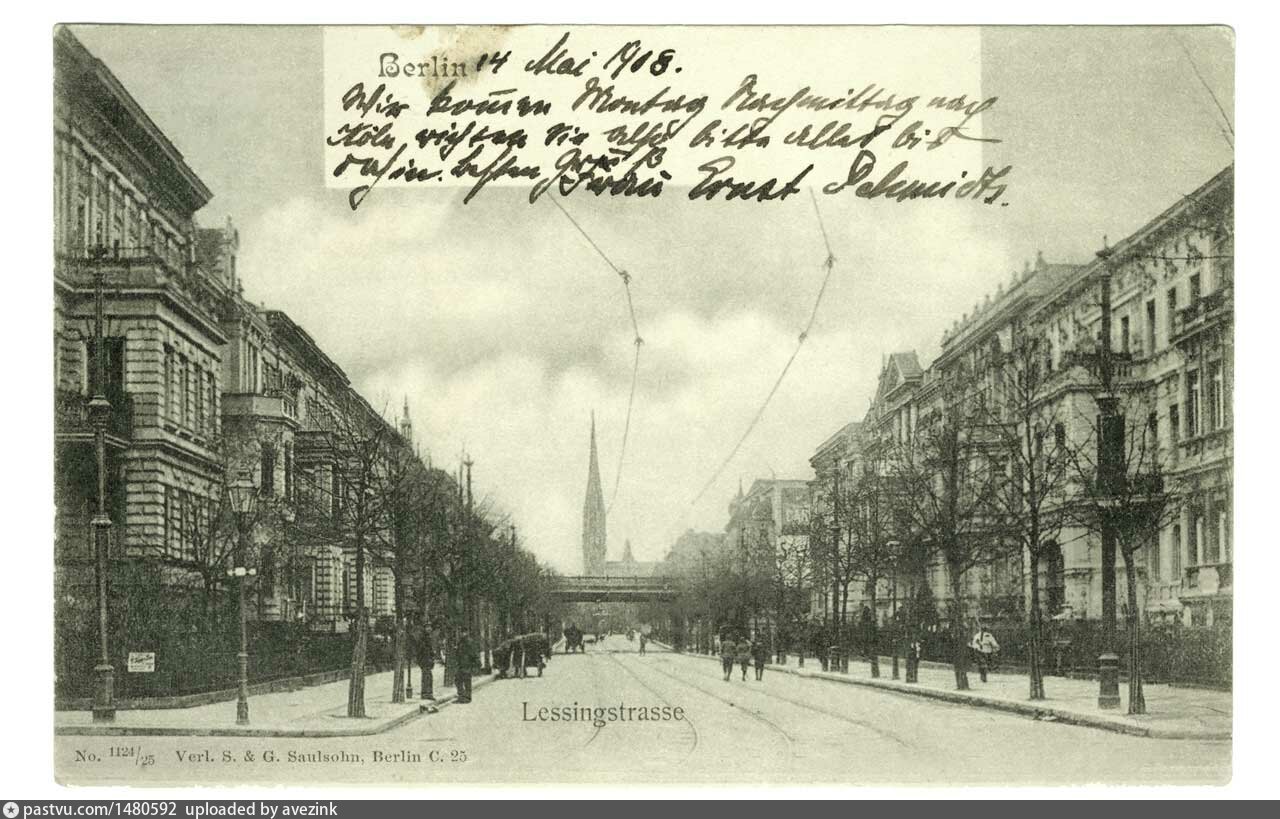 Berlin 14 Mai 1908.
Wir kom̄en Montag Nachmittag nach
Köln richten Sie also bitte Alles bis
dahin. besten Gruß
Frau Ernst Schmidt.
Lessingstrasse
No. 1124/25 Verl. S. & G. Saulsohn, Berlin C. 25
pastvu.com/1480592 uploaded by avezink